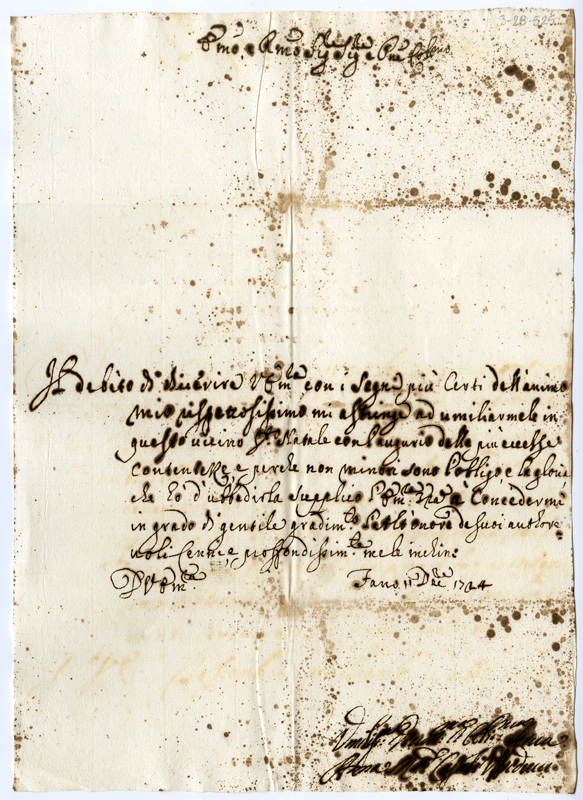 3-28-525
Em̃o, e Rm̃o Sig.re Sig.re e Pñe Colmo
Il debito di riverire V Em.za con i segni più certi dell'animo
mio rispettosissimo mi astringe ad umiliarmele in
questo vicino S. Natale con l'augurio delle più eccelse
contentezze, e perche non minori sono l'obligo, e la gloria
che hò d'ubbidirla supplico l'Em.za Vrã Concedermi
in grado di gentile gradim.to l'alt'onore de suoi authore
voli Cenni, e proffondissim.te me le inchino
D V Em.za
Fano 11 Dm̃e 1724